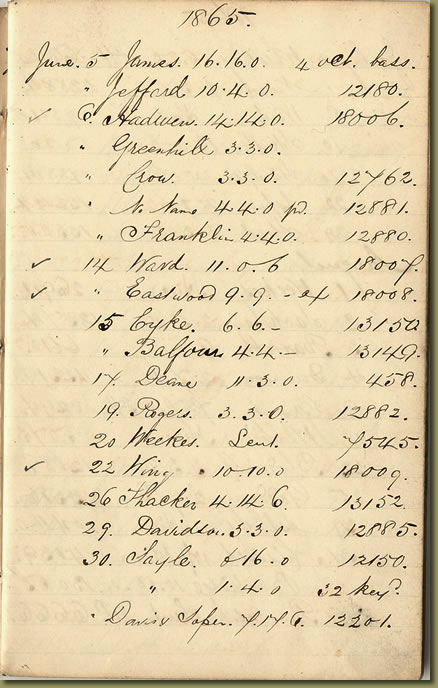 1865.
June. 5 James. 16.16.0 4 oct. bass.
" Jefford 10.4.0. 12180.
✓ 6. Hadwen. 14.14.0. 18006.
" Greenhill 3.3.0.
" Crow. 3.3.0. 12762.
" No Name 4.4.0 pd. 12881.
" Franklin 4.4.0. 12880.
✓ 14 Ward. 11.0.6 18007.
✓ " Eastwood 9.9. - ex 18008.
15 Eyke. 6.6.- 13150
" Balfour 4.4.- 13149.
17. Deane 11.3.0. 458.
19. Rogers. 3.3.0. 12882.
20 Weekes. Lent. 7545.
✓ 22 Wing 10.10.0 18009.
26 Thacker 4.14.6. 13152.
29. Davidson. 3.3.0. 12885.
30. Sayle. 16.0 12150.
" 1.4.0 32 key.
" Davis 7.17.6. 12201.